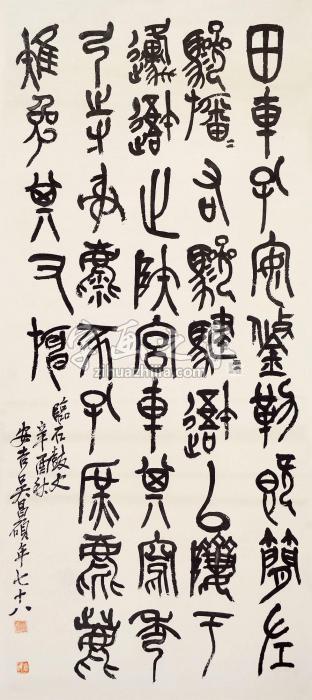 田車孔安鋚勒既簡左
驂旛=右驂騝=避以隮于
邍避止陜宮車其寫秀
弓寺射麋豕孔庶麀鹿
雉兔其又旃
臨石鼓文
辛酉秋
安吉吳昌碩年七十八
zihuazhijia.com